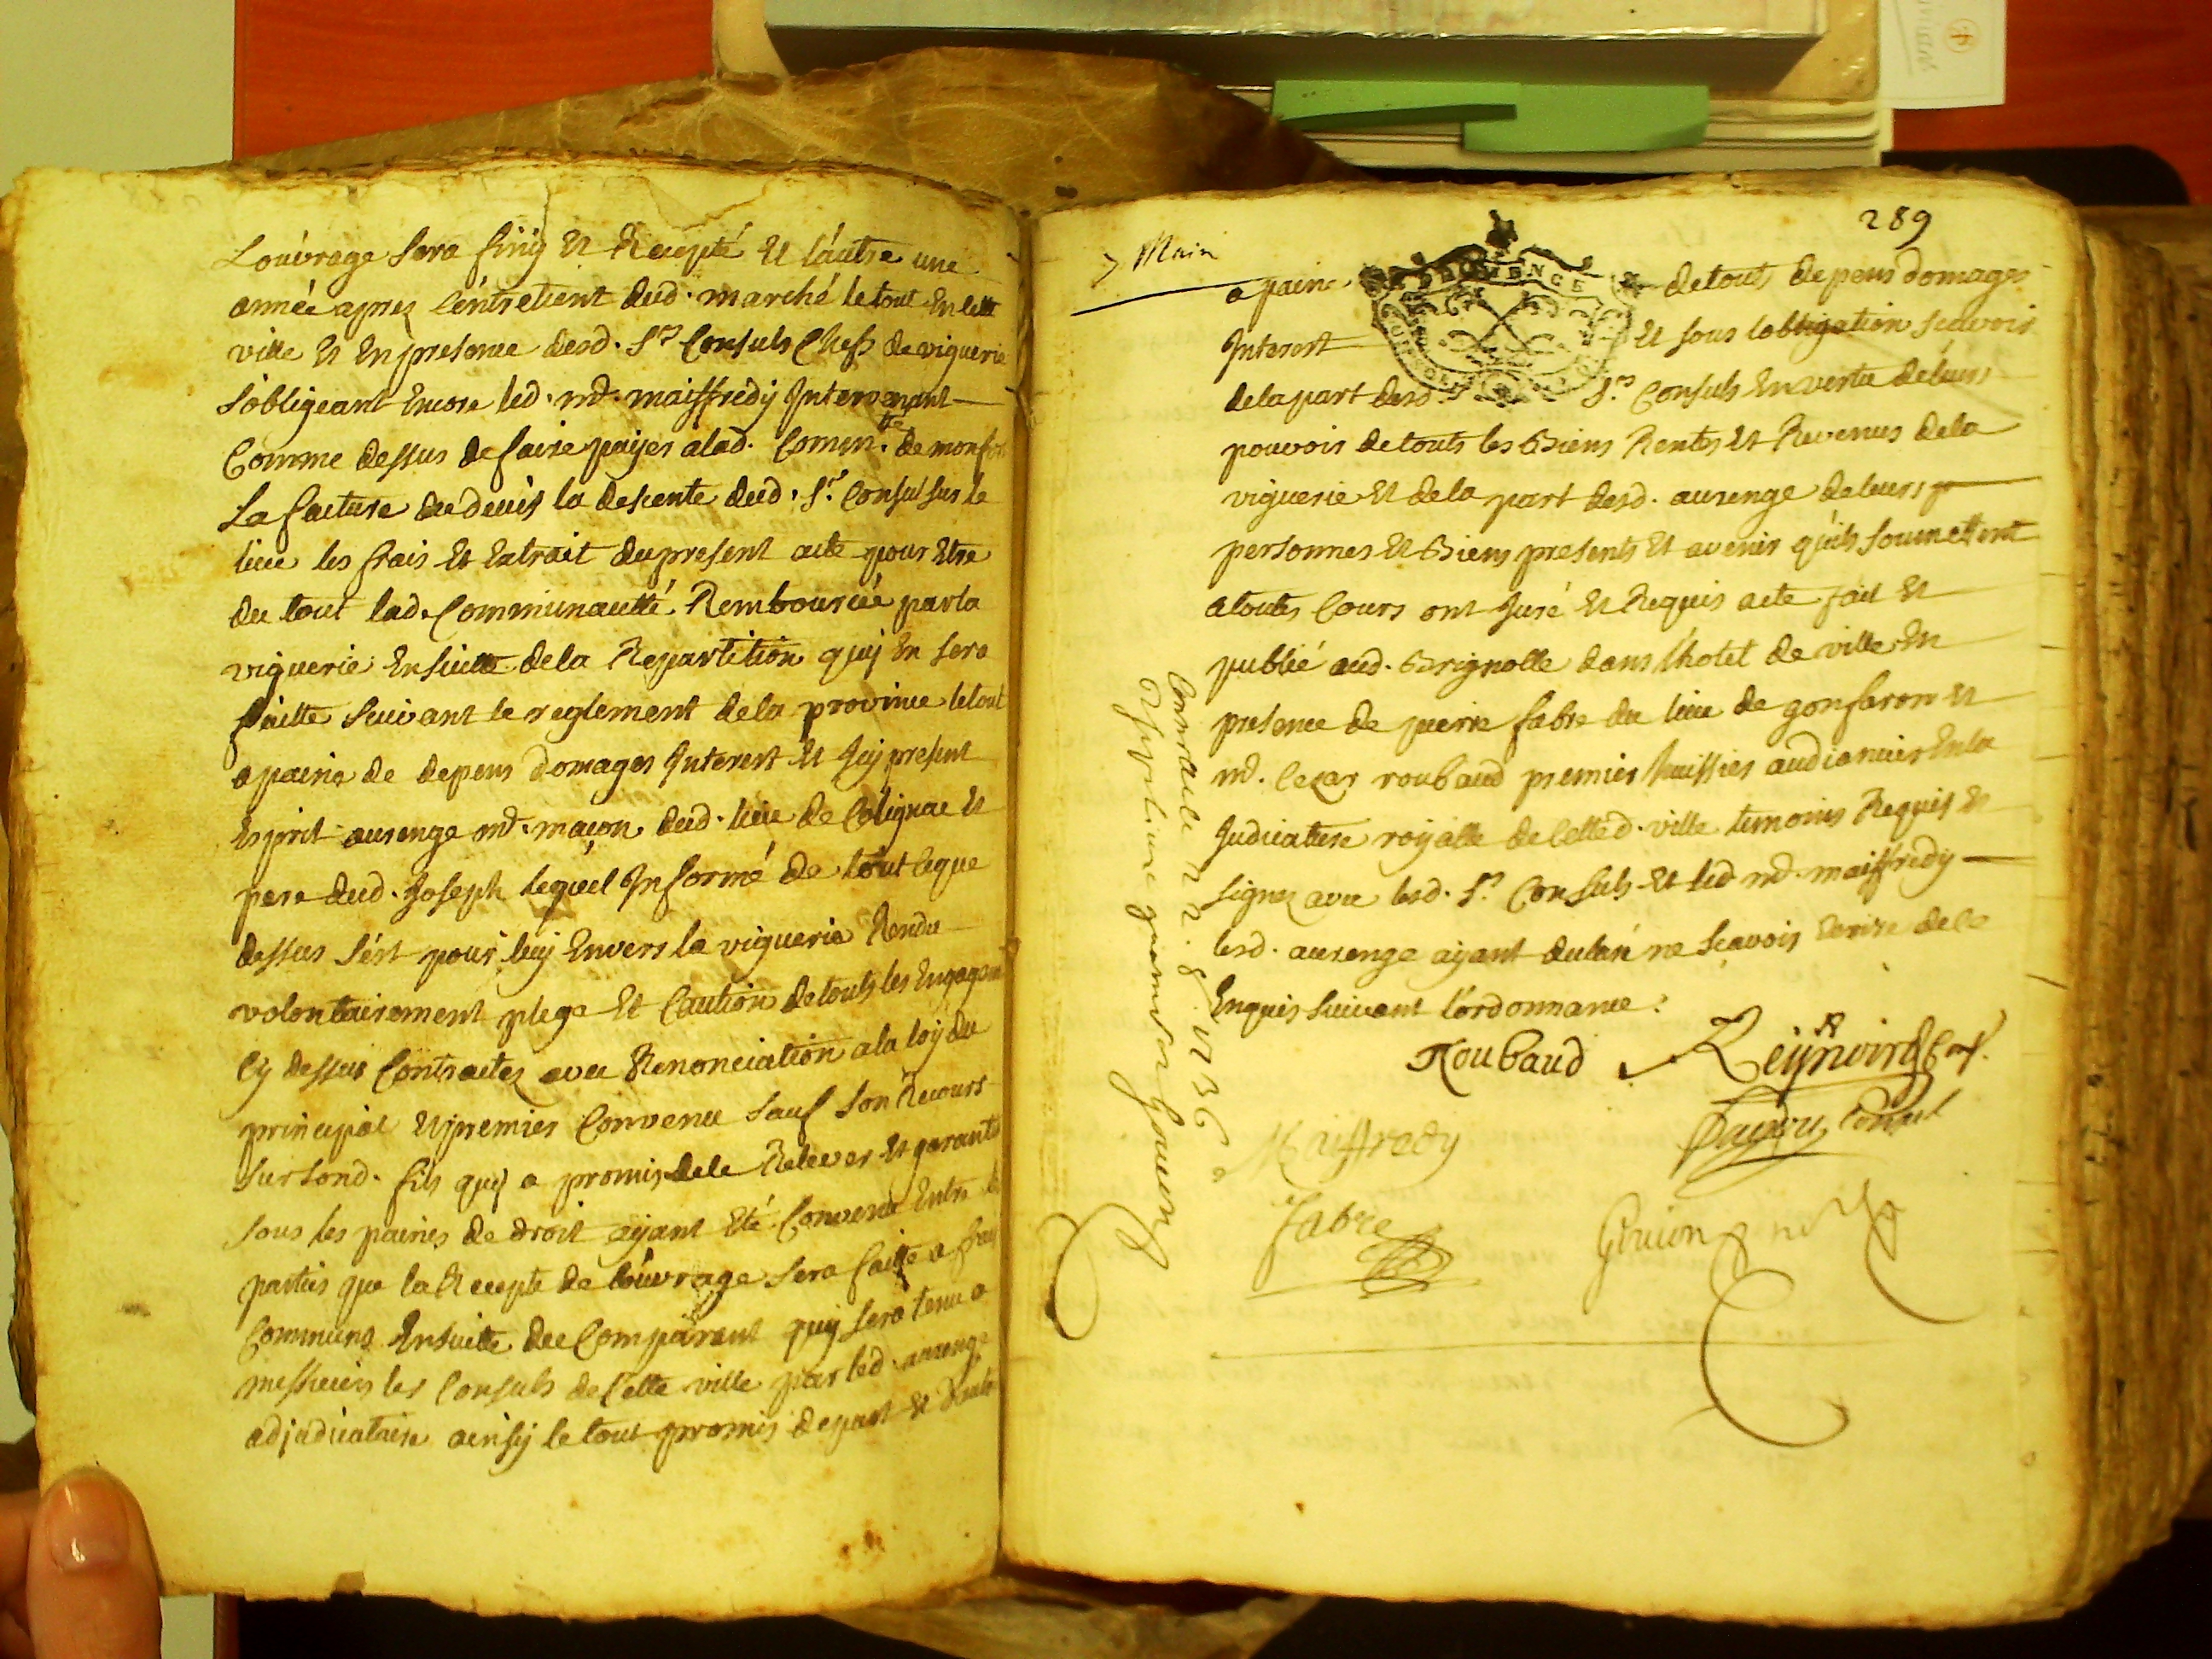 Louvrage sera finy et Recepté et lautre une
année aprez lentretient dud. marché le tout en cette
ville et en presence desd. Srs Consuls Chefs de viguerie
sobligeant encore led. md. maiffredy Intervenant
Comme dessus de faire payer a lad. Commté de monfort
La facture du devis la descente dud. Sr. Consul sur le
lieu les frais et Extrait du present acte pour Etre
du tout lad. Communautté Remboursée par la
viguerie Ensuitte de la Repartition quy en sera
faitte suivant le reglement de la province le tout
a paine de depens domages Interest et Icy present
Esprit aurenge md. maçon dud. lieu de Cotignac et
pere dud. Joseph lequel Informé de tout ceque
dessus sest pour luy Envers la viguerie Rendu
volontairement plege et Caution de touts les Engagem
Cy dessus Contractez avec Renonciation a la loy du
principal et premier Convenu sauf son Recours
sur sond. fils quy a promis de le Relever et garantir
sous les paines de droit ayant eté Convenu Entre les
parties que la Recepte de louvrage sera faitte a frais
Communs Ensuitte du Comparant quy sera tenu a
messieurs les Consuls de Cette ville par led. aurenge
adjudicataire ainsy le tout promis de part et
289
Main
a paine de touts depens domages
Interest et sous lobligation scavoir
de la part desd. Srs. Consuls en vertu de leurs
pouvoir de touts les Biens Rentes et Revenus de la
viguerie et de la part desd. aurenge de leurs p
personnes et Biens presents et avenir quils soumettent
a toutes Cours ont Juré et Requis acte fait et
publié aud. Brignolle dans lhotel de ville en
presence de pierre fabre du lieu de gonfaron et
md. Cezar roubaud premier huissier audiancier en la
Judicature royalle de Cetted. ville temoins Requis et
signez avec lesd. Srs. Consuls et led md. maiffredy
lesd. aurenge ayant declaré ne scavoir Ecrire de ce
Enquis suivant lordonnance
Roubaud Reynoird Cons.
Consul
Maiffredy
Fabre
Goujon
Controulé 1736